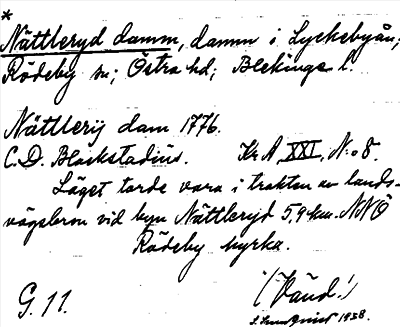 *
Nättleryd damm, damm i Lyckebyån;
Rödeby sn; Östra hd; Blekinge l.
Nättlerij dam 1776.
C.D. Blackstadius. Kr A, XXI, N:o 8.
Läget torde vara i trakten av lands-
vägsbron vid byn Nättleryd 5,9 km. NNÖ
Rödeby kyrka.
G. 11.
1938.